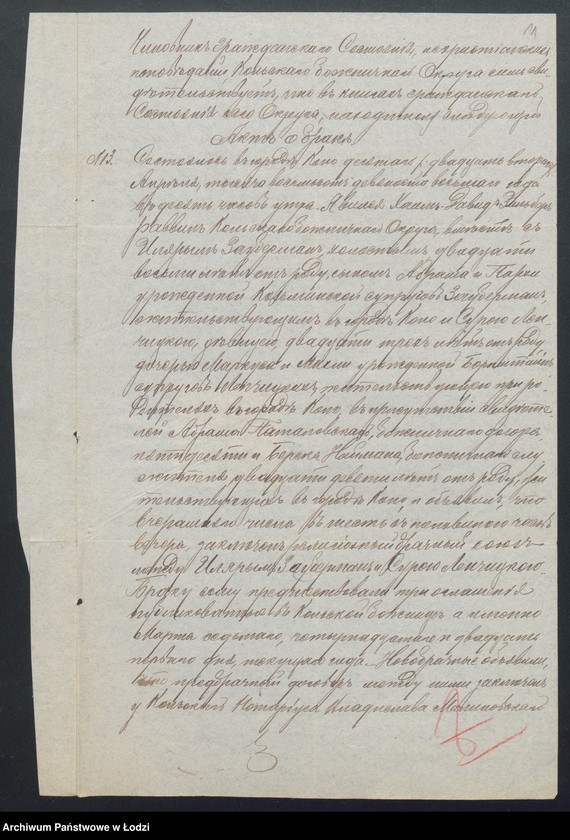 Чиновникъ Гражданскаго Состоянія, нехристіанскихъ
исповѣданій, Кольскаго Божничнаго Округа симъ сви-
дѣтельствуетъ, что въ книгахъ гражданскаго
Состоянія сего Округа, находится слѣдующій
Актъ о бракѣ
№13. Состоялось въ городѣ Коло десятаго (двадцать втораго)
Апрѣля, тысяча восемьсотъ девяносто восьмаго года
въ десять часовъ утра. Явился Хаимъ-Давидъ
раввинъ Кольскаго божничнаго Округа, вмѣстѣ съ
Зауберманъ, холостымъ, двадцати
восьми лѣтъ отъ роду, сыномъ Абрама и
урожденной супруговъ Зауберманъ,
жительствующимъ въ городѣ Коло и Сурою Лен-
чицкою, дѣвицею, двадцати трехъ лѣтъ отъ роду
дочерью Маркуса и урожденной Борнштейнъ
супруговъ Ленчицкихъ жительствующею при ро-
дителяхъ въ городѣ Коло, въ присутствіи свидѣте-
лей Абрама божничнаго
пятидесяти и Берека Наймана, божничнаго слу-
жителя, двадцати девяти лѣтъ отъ роду, жи-
тельствующихъ въ городѣ Коло, и объявилъ, что
вчерашняго числа въ шесть съ половиною часовъ
вечера, заключенъ религіозный брачный союзъ
между Зауберманъ и Сурою Ленчицкою.
Браку сему предшествовали три оглашенія
публикованныя въ Кольской божницѣ а именно
Марта седьмаго, четырнадцатаго и двадцать
перваго дня, текущаго года. Новобрачные объявили,
что предбрачный договоръ между ними заключенъ
у Кольскаго Нотаріуса Владислава